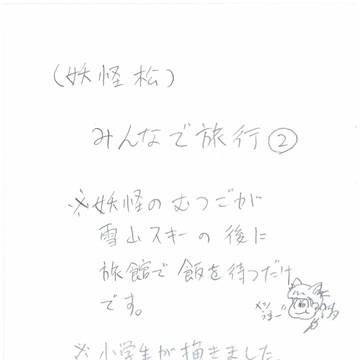 (妖怪松)
みんなで旅行②
※妖怪のむつごが
雪山スキーの後に
旅館で飯を待つだけ
です。
※小学生が描きました